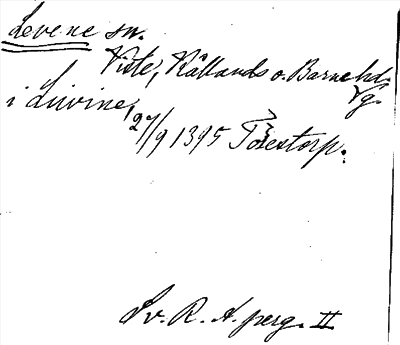 Levene sn.
Viste, Kållands o. Barne hd.
Vg.
i Liwine, 27/9 1395 Torestorp.
Sv. R. A. perg. II